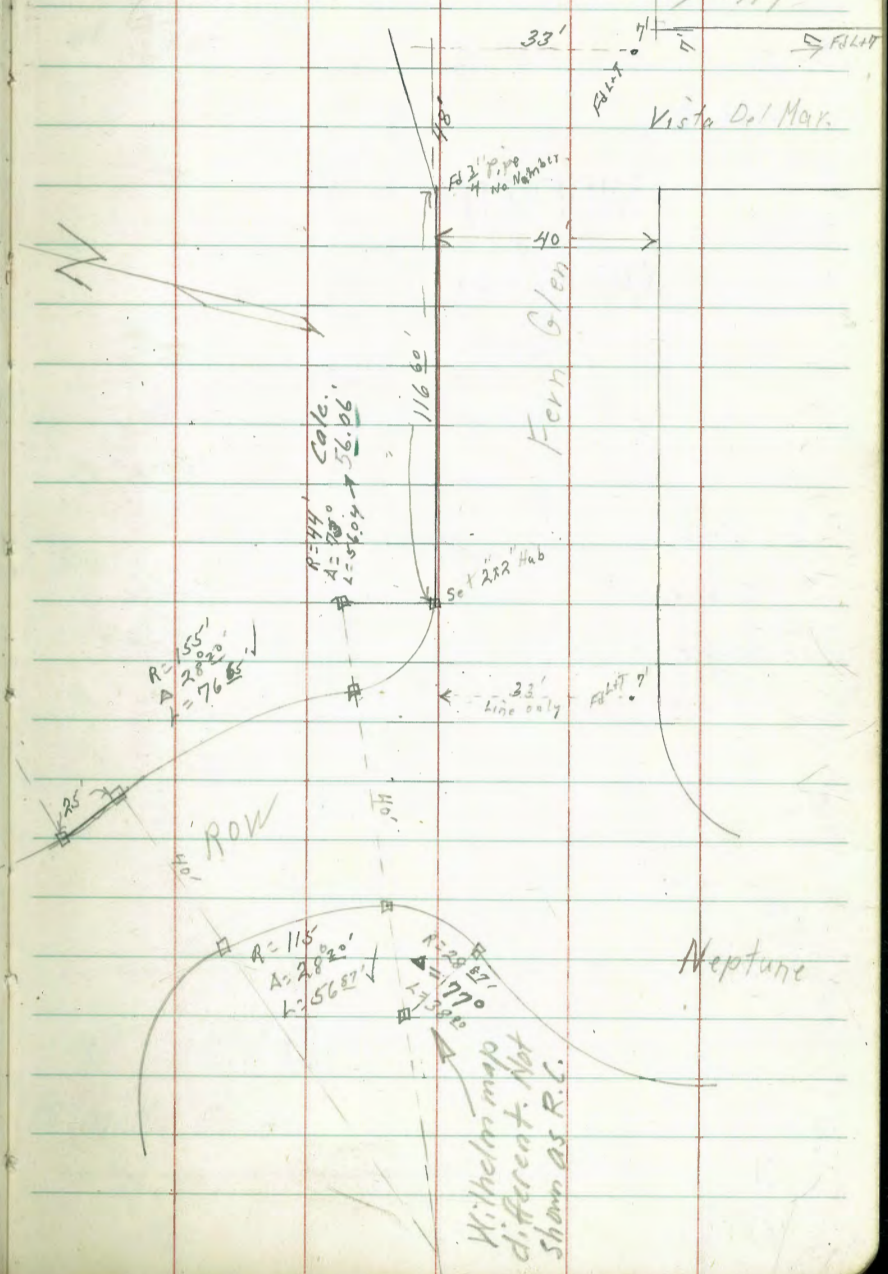 33'
7'
7'
7
Fd L+T
Fd L+T
Vista Del Mar.
48'
Fd 3/4" Pipe
No Number
40'
Fern Glen
116 60'
Calc.
56.06'
R=44'
L=56.04
Set 2"x2" Hub
R=155'
Δ=28°20'
L=76 65'
33'
Line only
Fd L+T
7'
25'
ROW
40'
40'
R=115
Δ=28°20'
L=56 87'
R=28 87'
Δ=77°
L=38 80
Neptune
Wilhelm map
different. Not
shown as R.C.